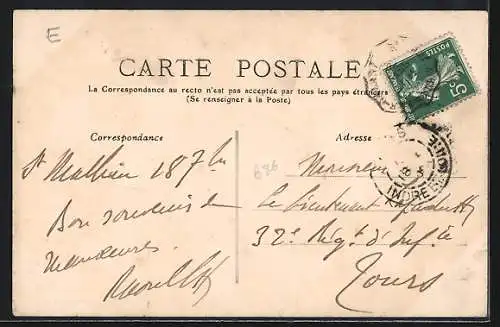 E
CARTE POSTALE
La Correspondance au recto n'est pas acceptée par tous les pays étrangers
(Se renseigner à la Poste)
Correspondance
Adresse
St Mathieu 18 7bre
Bon souvenir de
manœuvres.
686
Monsieur
Le Lieutenant
32e Régt d'Infie
Tours
POSTES
5
INDRE